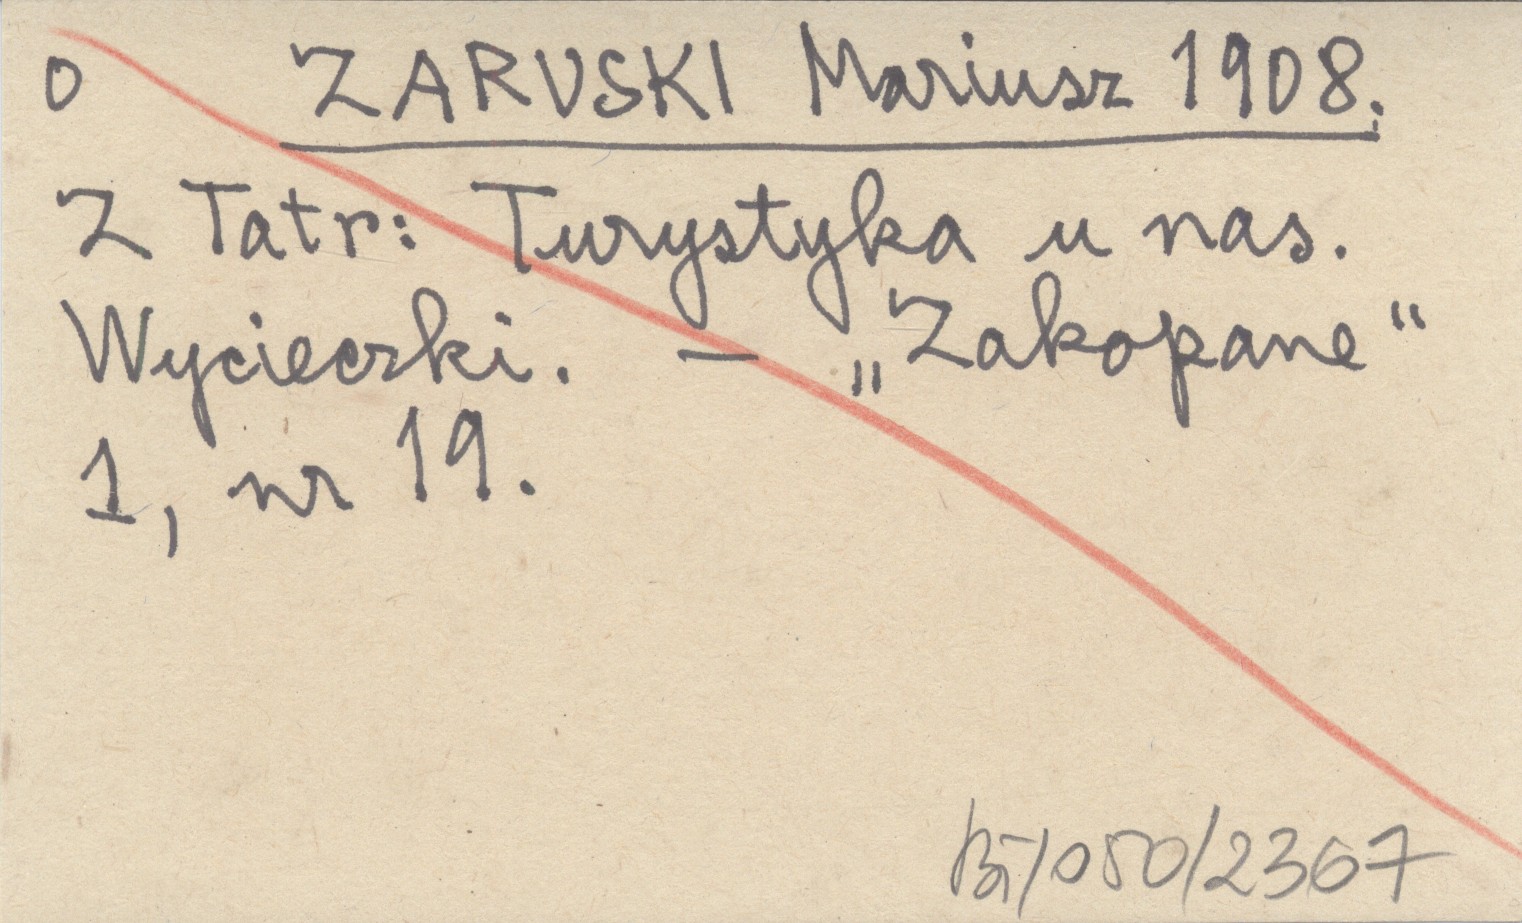 0 ZARUSKI Mariusz 1908.
Z Tatr: Turystyka u nas.
Wycieczki. – „Zakopane“
1, nr 19.
Bi/050/2367